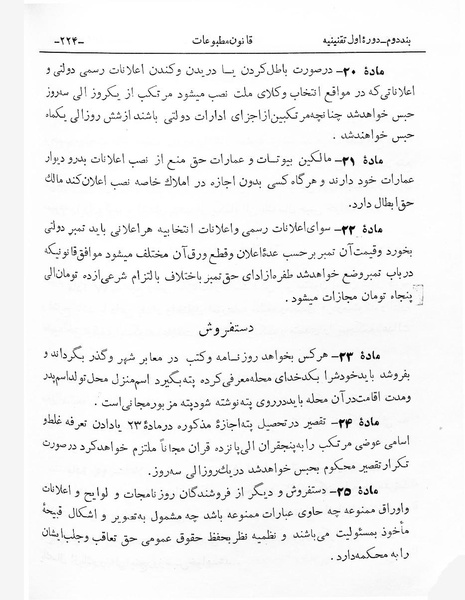 بنددوم_دورۀ اول تقنینیه قانون مطبوعات -۲۲۴-
مادۀ ۲۰- درصورت باطل‌کردن یا دریدن و کندن اعلانات رسمی دولتی و
اعلاناتی‌که در مواقع انتخاب وکلای ملت نصب میشود مرتکب از یکروز الی سه‌روز
حبس خواهدشد چنانچه مرتکبین‌ازاجزای ادارات دولتی باشند ازشش روزالی یکماه
حبس خواهندشد .
مادۀ ۲۱- مالکین بیوتات و عمارات حق منع از نصب اعلانات بدرو دیوار
عمارات خود دارند و هرگاه کسی بدون اجازه در املاك خاصه نصب اعلان‌کند مالك
حق ابطال دارد.
مادۀ ۲۲- سوای‌اعلانات رسمی واعلانات انتخابیه هراعلانی باید تمبر دولتی
بخورد وقیمت‌آن تمبر برحسب عدۀ اعلان وقطع ورق‌آن مختلف میشود موافق‌قانونیکه
درباب تمبروضع خواهدشد طفره‌ازادای حق‌تمبر باختلاف بالتزام شرعی‌ازده تومان‌الی
پنجاه تومان مجازات میشود .
دستفروش
مادۀ ۲۳- هرکس بخواهد روزنامه وکتب در معابر شهر وگذر بگرداند و
بفروشد بایدخودشرا بکدخدای محله‌معرفی‌کرده پته‌بگیرد اسم‌منزل محل‌تولداسم‌پدر
ومدت اقامت‌درآن محله بایددرروی پته‌نوشته شودپته مزبورمجانی‌است .
مادۀ ۲۴- تقصیر درتحصیل پته‌اجازۀ مذکوره درمادۀ ۲۳ یادادن تعرفه غلط‌و
اسامی عوضی مرتکب را به‌پنجقران الی‌پانزده قران مجاناً ملتزم خواهدکرد درصورت
تکرارتقصیر محکوم بحبس خواهدشد دریك‌روزالی سه‌روز.
مادۀ ۲۵- دستفروش و دیگر از فروشندگان روزنامجات و لوایح و اعلانات
واوراق ممنوعه چه حاوی عبارات ممنوعه باشد چه مشمول به‌تصویر و اشکال قبیحۀ
مأخوذ بمسئولیت می‌باشند و نظمیه نظربحفظ حقوق عمومی حق تعاقب وجلب‌ایشان
را به محکمه‌دارد.